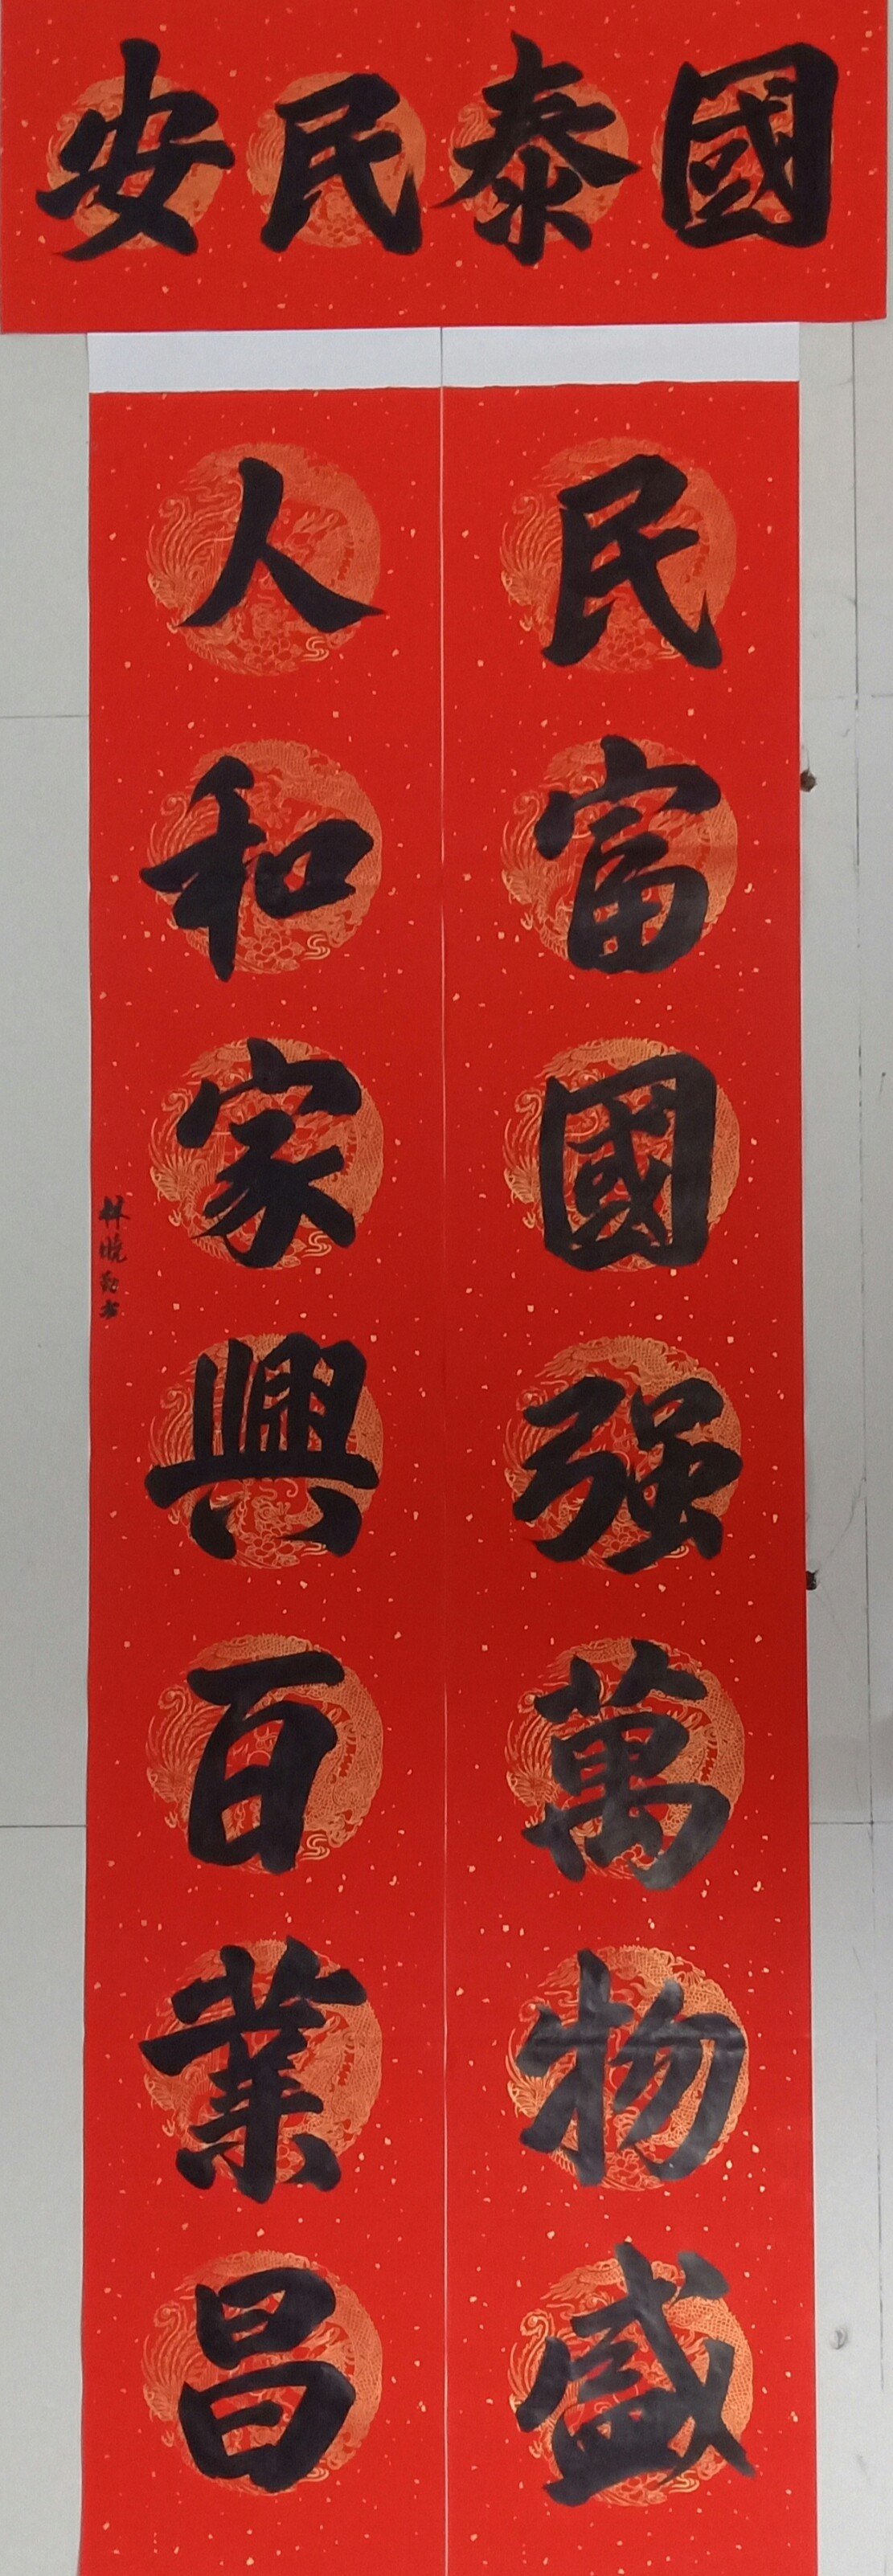 國泰民安
民富國强萬物盛
人和家興百業昌
林曉